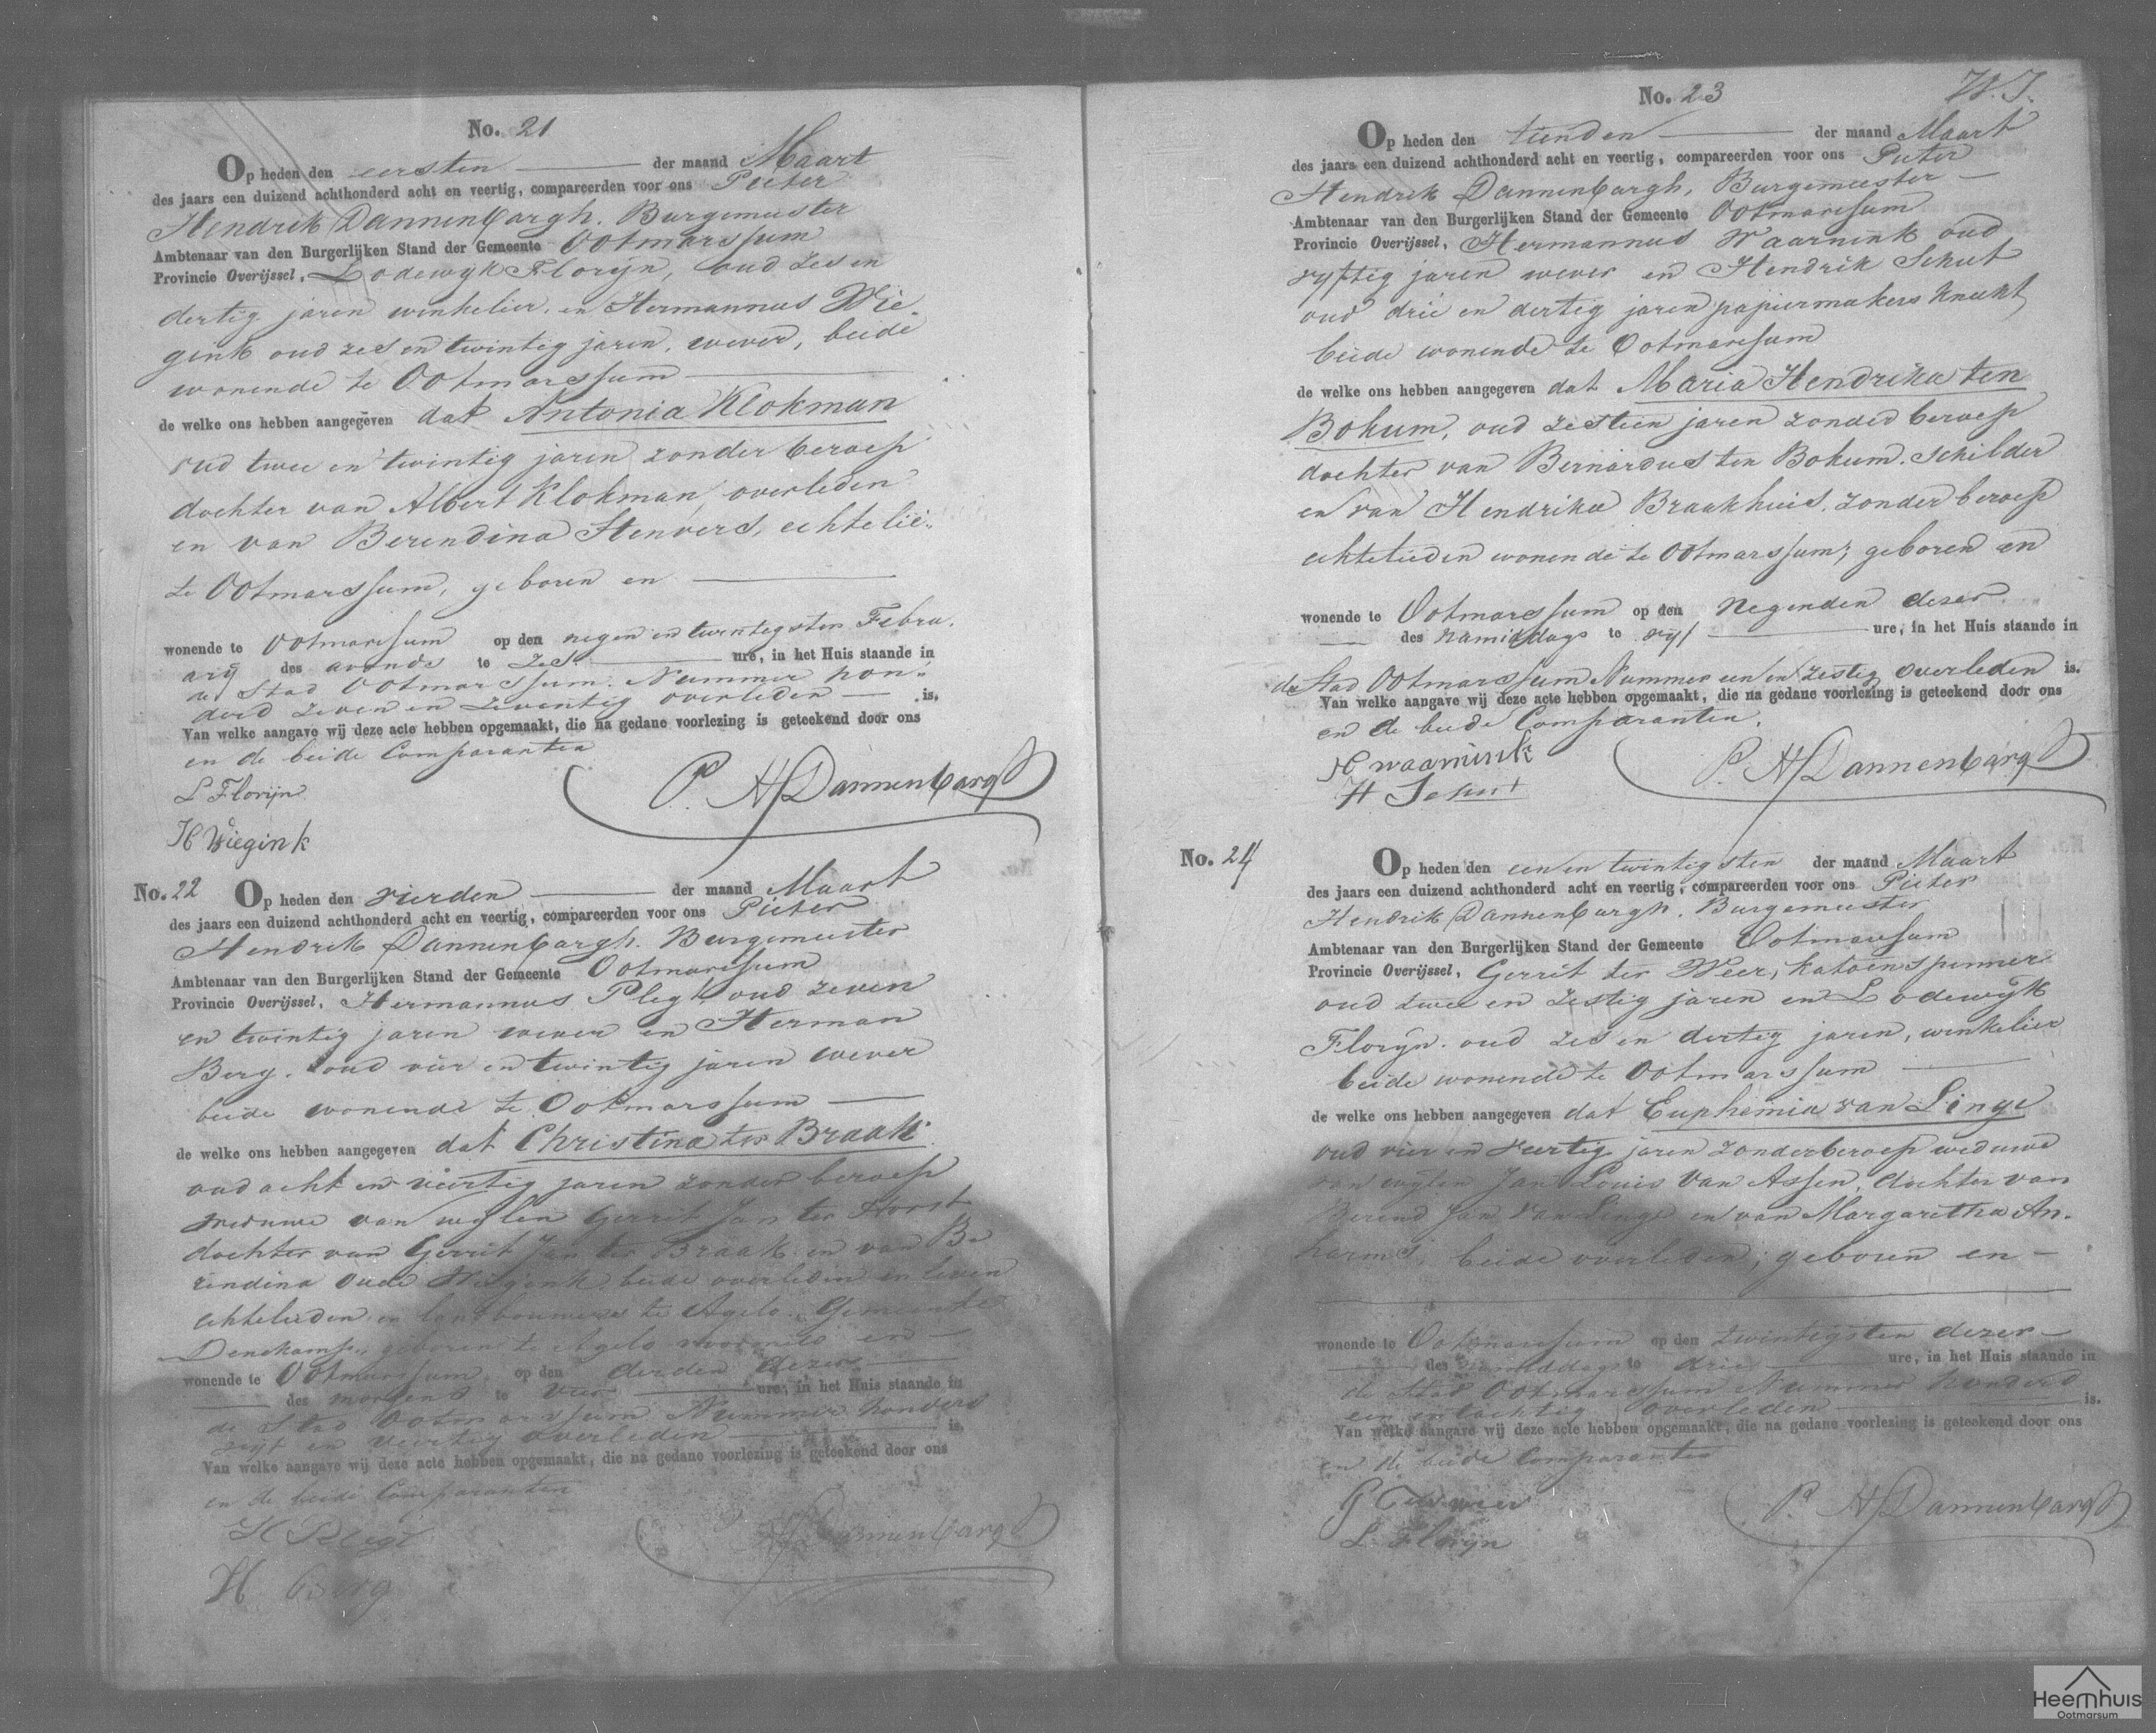 No. 21
Op heden den eersten der maand Maart
des jaars een duizend achthonderd acht en veertig, compareerden voor ons Pieter
Hendrik Dannenbargh, Burgemeester
Ambtenaar van den Burgerlijken Stand der Gemeente Ootmarssum
Provincie Overijssel, Lodewyk Florijn, oud zes en
dertig jaren winkelier, en Hermannus Wie-
gink oud zes en twintig jaren, wever, beide
wonende te Ootmarssum
de welke ons hebben aangegeven dat Antonia Klokman
oud twee en twintig jaren zonder beroep
dochter van Albert Klokman, overleden
en van Berendina Stenvers, echtelie..
te Ootmarssum, geboren en
wonende te Ootmarssum op den negen en twentigsten Febru.
arij des avonds te zes ure, in het Huis staande in
de Stad Ootmarssum Nummer hon-
derd zeven en zeventig overleden is.
Van welke aangave wij deze acte hebben opgemaakt, die na gedane voorlezing is geteekend door ons
en de beide Comparanten
L Florijn
P. H Dannenbargh
H Wiegink
No. 22 Op heden den vierden der maand Maart
des jaars een duizend achthonderd acht en veertig, compareerden voor ons Pieter
Hendrik Dannenbargh, Burgemeester
Ambtenaar van den Burgerlijken Stand der Gemeente Ootmarssum
Provincie Overijssel, Hermannus Plegt oud zeven
en twintig jaren wever en Herman
Berg, oud vier en twintig jaren wever
beide wonende te Ootmarssum
de welke ons hebben aangegeven dat Christina ter Braak
oud acht en veertig jaren zonder beroep
weduwe van wylen Gerrit Jan ter Horst
dochter van Gerrit Jan ter Braak en van Be
rendina Oude Wiegink, beide overleden in leven
echtelieden en landbouwers te Agelo, Gemeente
Denekamp, geboren te Agelo voormeld en
wonende te Ootmarssum op den derden dezer
des morgens te vier ure, in het Huis staande in
de Stad Ootmarssum Nummer honderd
vyf en veertig overleden is.
Van welke aangave wij deze acte hebben opgemaakt, die na gedane voorlezing is geteekend door ons
en de beide Comparanten
H Plegt
P. H Dannenbargh
H Berg
No. 23 W.J.
Op heden den tienden der maand Maart
des jaars een duizend achthonderd acht en veertig, compareerden voor ons Pieter
Hendrik Dannenbargh, Burgemeester
Ambtenaar van den Burgerlijken Stand der Gemeente Ootmarssum
Provincie Overijssel, Hermannus Waarnink oud
vyftig jaren wever en Hendrik Schut
oud drie en dertig jaren papiermakers knecht
beide wonende te Ootmarssum
de welke ons hebben aangegeven dat Maria Hendrika ten
Bokum, oud zestien jaren zonder beroep
dochter van Bernardus ten Bokum, schilder
en van Hendrika Braakhuis, zonder beroep
echtelieden wonende te Ootmarssum, geboren en
wonende te Ootmarssum op den negenden dezer
des namiddags te vyf ure, in het Huis staande in
de Stad Ootmarssum Nummer een en zestig overleden is.
Van welke aangave wij deze acte hebben opgemaakt, die na gedane voorlezing is geteekend door ons
en de beide Comparanten.
H waarnink
P. H Dannenbargh
H Schut
No. 24 Op heden den een en twintigsten der maand Maart
des jaars een duizend achthonderd acht en veertig, compareerden voor ons Pieter
Hendrik Dannenbargh, Burgemeester
Ambtenaar van den Burgerlijken Stand der Gemeente Ootmarssum
Provincie Overijssel, Gerrit ter Weer, katoenspinner
oud twee en zestig jaren en Lodewyk
Florijn, oud zes en dertig jaren, winkelier
beide wonende te Ootmarssum
de welke ons hebben aangegeven dat Euphemia van Linge
oud vier en veertig jaren zonder beroep weduwe
van wylen Jan Louis van Assen, dochter van
Berend Jan van Linge en van Margaretha An-
harms, beide overleden, geboren en
wonende te Ootmarssum op den twintigsten dezer
des namiddags te drie ure, in het Huis staande in
de Stad Ootmarssum Nummer honderd
een en tachtig overleden is.
Van welke aangave wij deze acte hebben opgemaakt, die na gedane voorlezing is geteekend door ons
en de beide Comparanten
G Ter weer
P. H Dannenbargh
L. Florijn
Heemhuis
Ootmarsum